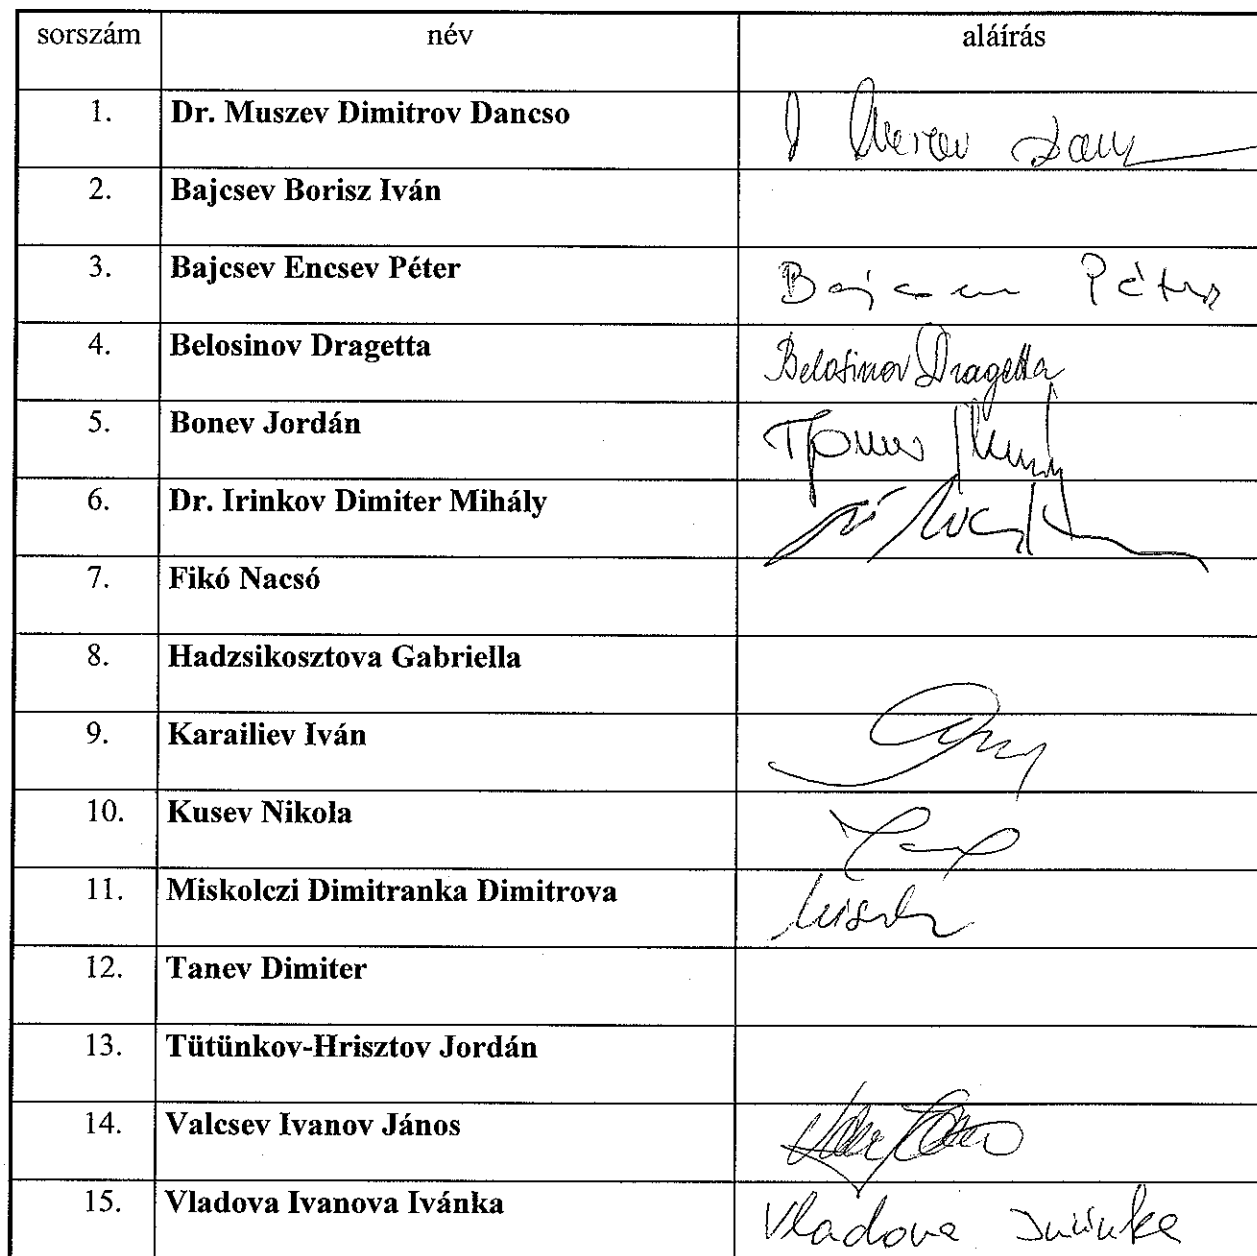 sorszám név aláírás
1. Dr. Muszev Dimitrov Dancso
2. Bajcsev Borisz Iván
3. Bajcsev Encsev Péter Bajcsev Péter
4. Belosinov Dragetta Belosinov Dragetta
5. Bonev Jordán
6. Dr. Irinkov Dimiter Mihály
7. Fikó Nacsó
8. Hadzsikosztova Gabriella
9. Karailiev Iván
10. Kusev Nikola
11. Miskolczi Dimitranka Dimitrova
12. Tanev Dimiter
13. Tütünkov-Hrisztov Jordán
14. Valcsev Ivanov János
15. Vladova Ivanova Ivánka Vladova Ivánka